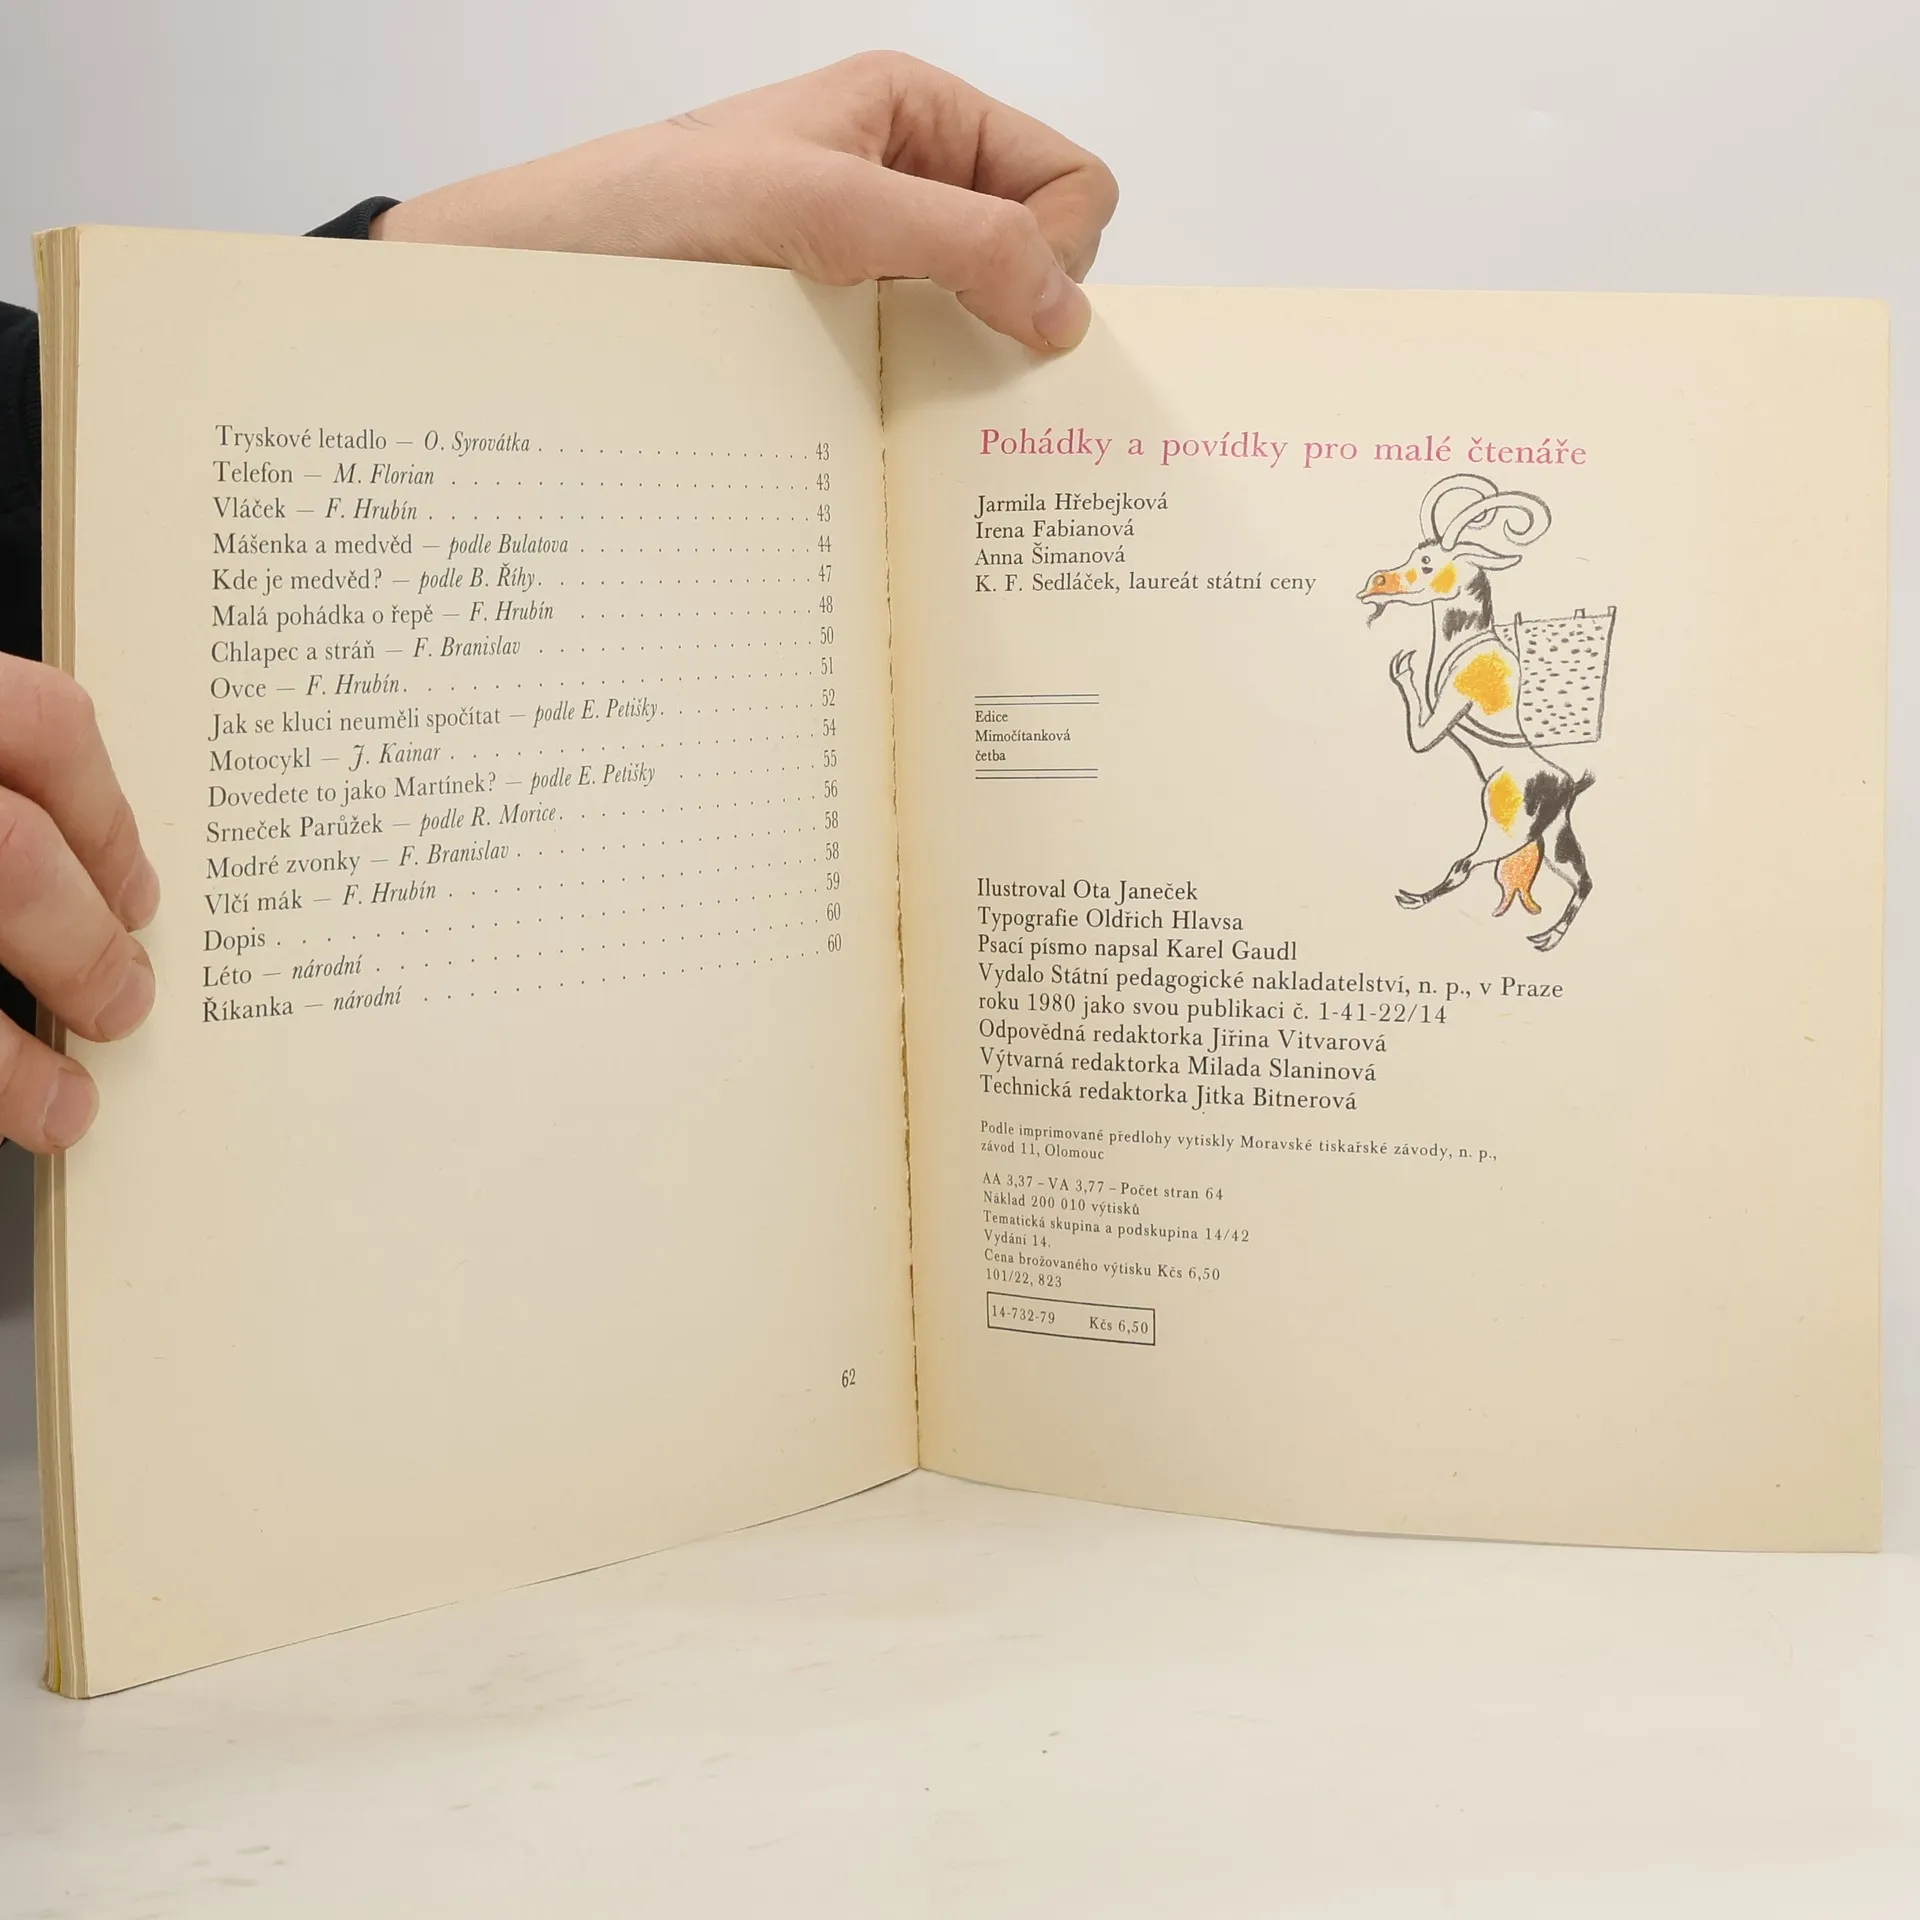 Tryskové letadlo — O. Syrovátka . . . . . . . . . . . . . . . . 43
Telefon — M. Florian . . . . . . . . . . . . . . . . . . . . 43
Vláček — F. Hrubín . . . . . . . . . . . . . . . . . . . . . 43
Mášenka a medvěd — podle Bulatova . . . . . . . . . . . . . 44
Kde je medvěd? — podle B. Říhy. . . . . . . . . . . . . . . 47
Malá pohádka o řepě — F. Hrubín . . . . . . . . . . . . . 48
Chlapec a stráň — F. Branislav . . . . . . . . . . . . . . . 50
Ovce — F. Hrubín. . . . . . . . . . . . . . . . . . . . . . 51
Jak se kluci neuměli spočítat — podle E. Petišky. . . . . . . . 52
Motocykl — J. Kainar . . . . . . . . . . . . . . . . . . . . 54
Dovedete to jako Martínek? — podle E. Petišky . . . . . . . . 55
Srneček Parůžek — podle R. Morice. . . . . . . . . . . . . . 56
Modré zvonky — F. Branislav . . . . . . . . . . . . . . . . 58
Vlčí mák — F. Hrubín . . . . . . . . . . . . . . . . . . . 58
Dopis . . . . . . . . . . . . . . . . . . . . . . . . . . . 59
Léto — národní . . . . . . . . . . . . . . . . . . . . . . 60
Říkanka — národní . . . . . . . . . . . . . . . . . . . . 60
62
Pohádky a povídky pro malé čtenáře
Jarmila Hřebejková
Irena Fabianová
Anna Šimanová
K. F. Sedláček, laureát státní ceny
Edice
Mimočítanková
četba
Ilustroval Ota Janeček
Typografie Oldřich Hlavsa
Psací písmo napsal Karel Gaudl
Vydalo Státní pedagogické nakladatelství, n. p., v Praze
roku 1980 jako svou publikaci č. 1-41-22/14
Odpovědná redaktorka Jiřina Vitvarová
Výtvarná redaktorka Milada Slaninová
Technická redaktorka Jitka Bitnerová
Podle imprimované předlohy vytiskly Moravské tiskařské závody, n. p.,
závod 11, Olomouc
AA 3,37 – VA 3,77 – Počet stran 64
Náklad 200 010 výtisků
Tematická skupina a podskupina 14/42
Vydání 14.
Cena brožovaného výtisku Kčs 6,50
101/22, 823
14-732-79 Kčs 6,50